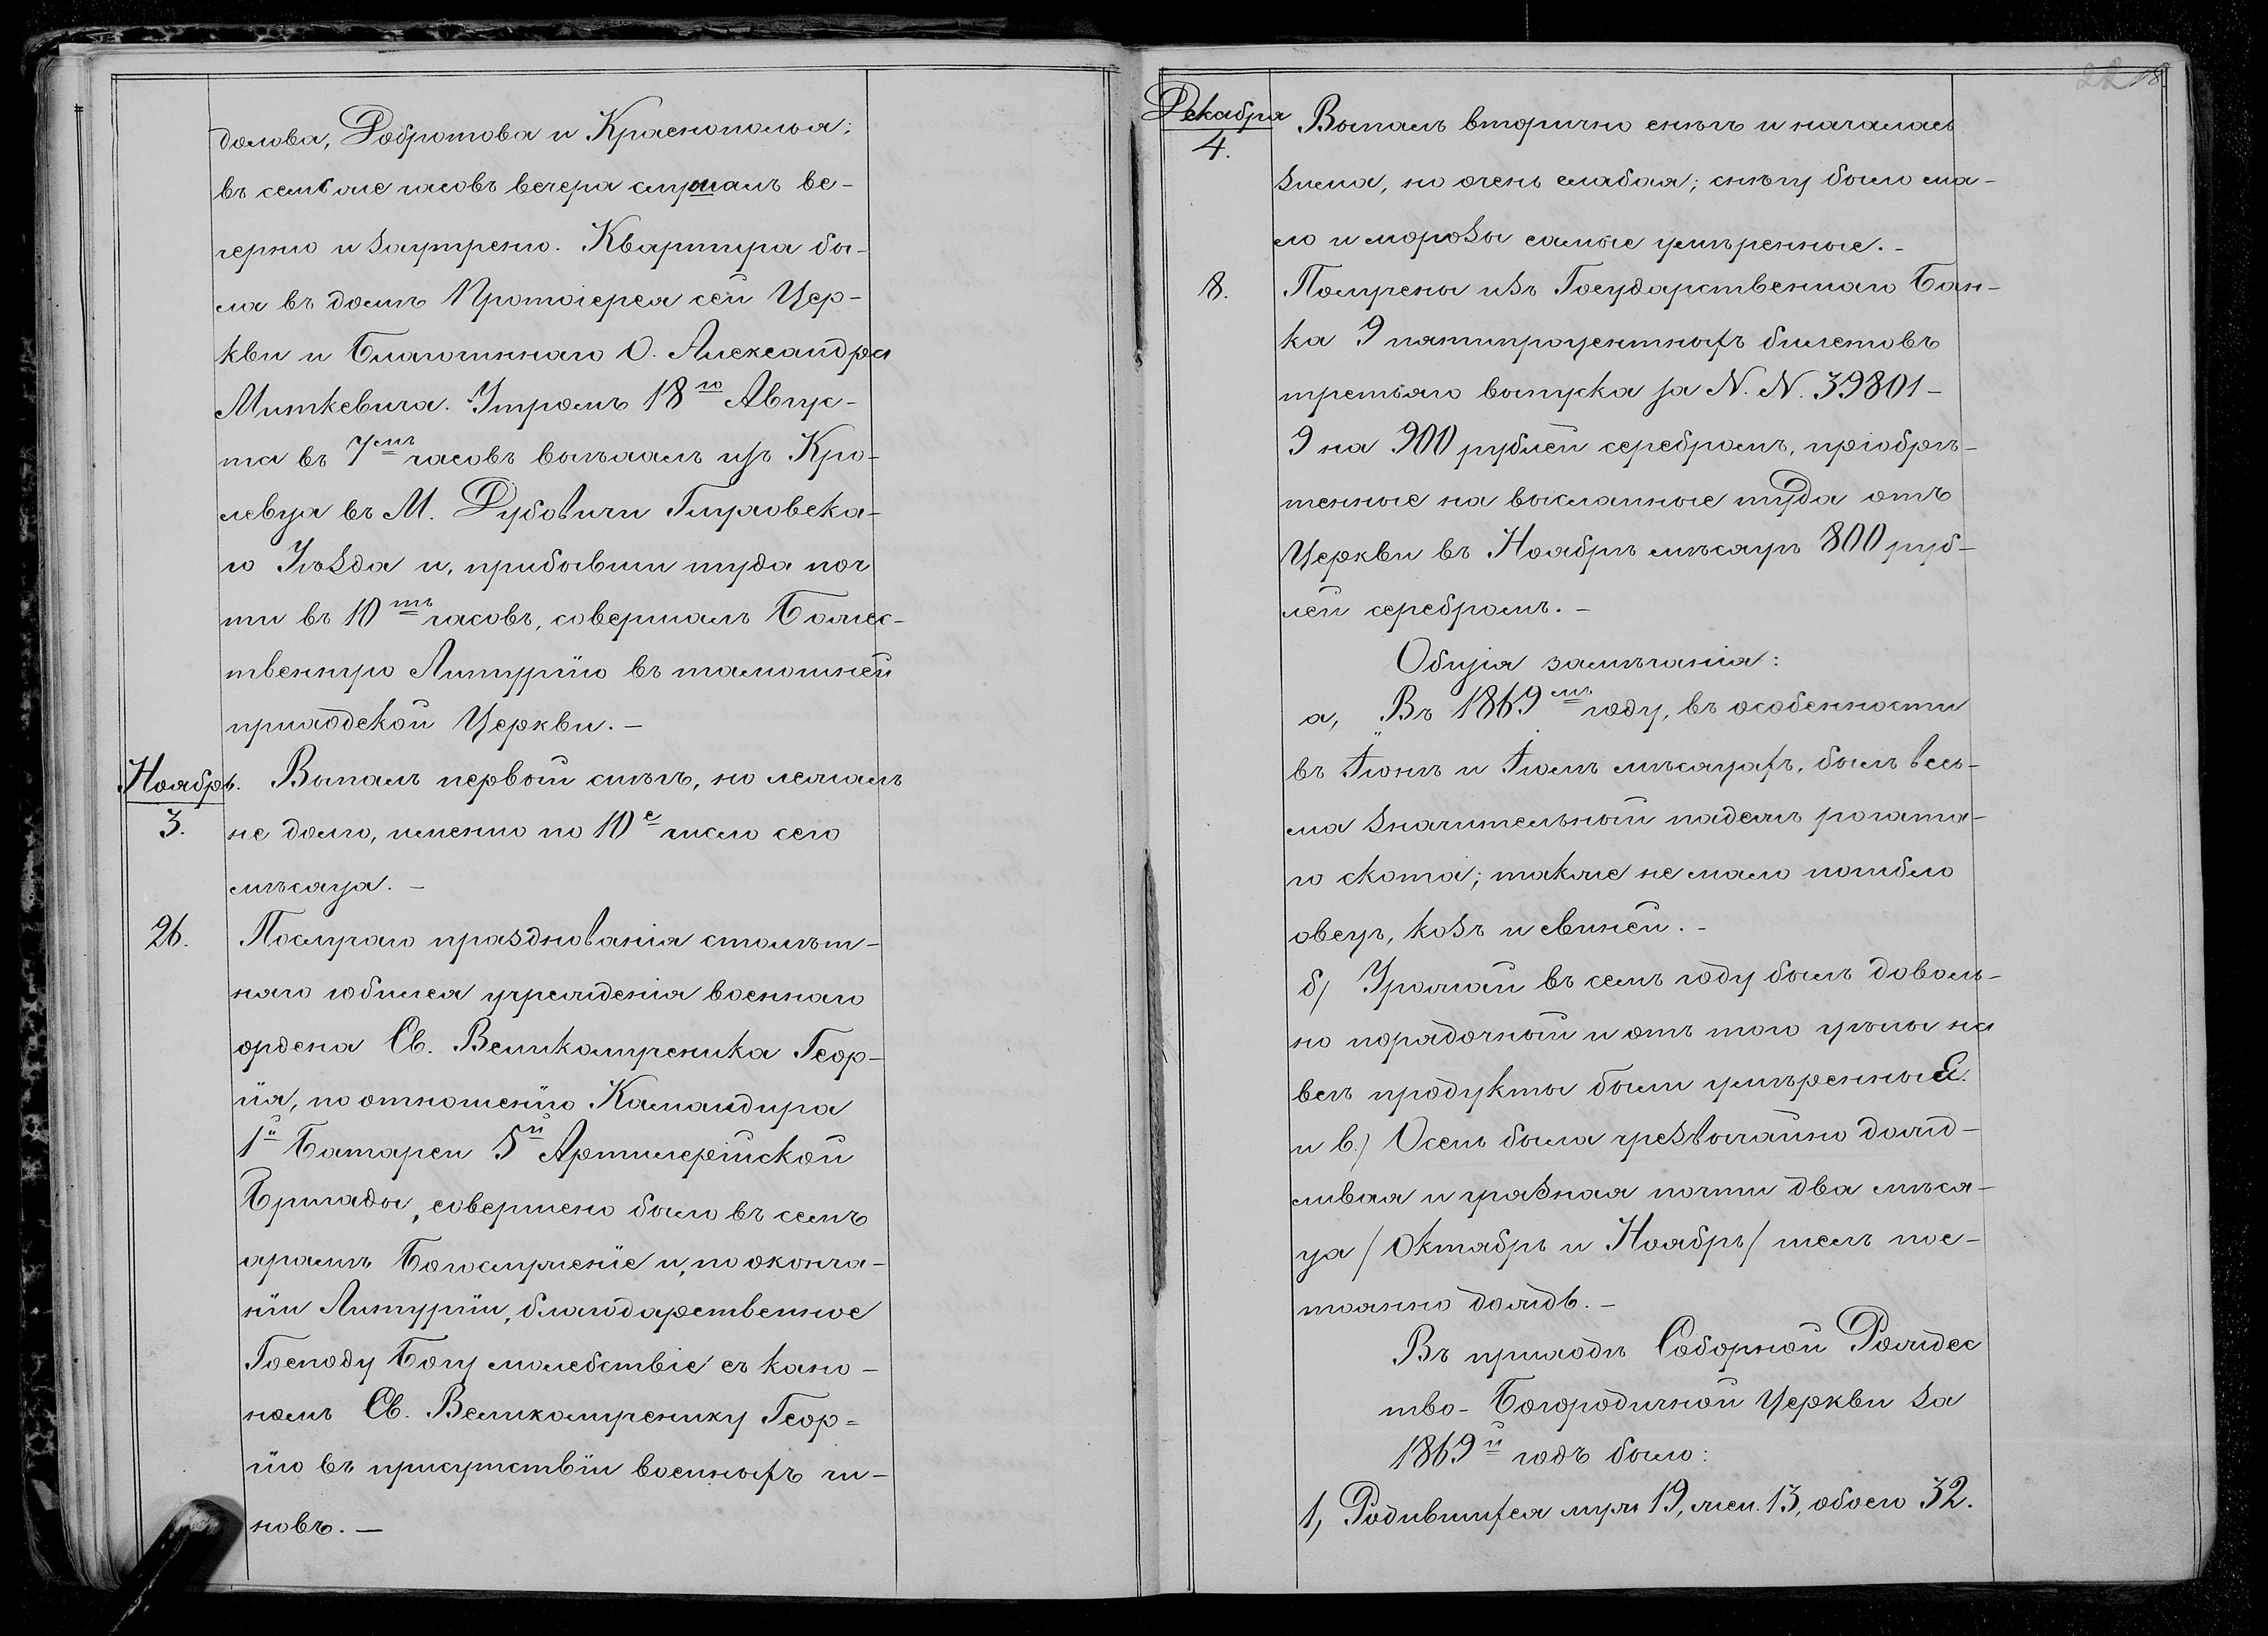 долова, Добротова и Краснополья;
въ семъ же часовъ вечера слушалъ ве-
черню и заутреню. Квартира бы-
ла въ домѣ Протоіерея сей Цер-
кви и Благочиннаго О. Александра
Миткевича. Утромъ 18го Авгус-
та въ 7мъ часовъ выѣхалъ изъ Кро-
левца въ М. Дубовичи Глуховска-
го Уѣзда и, прибывши туда поч
ти въ 10ть часовъ, совершалъ Божес-
твенную Литургїю въ тамошней
приходской Церкви. —
Ноябрь.
3.
Выпалъ первый снѣгъ, но лежалъ
не долго, именно по 10е число сего
мѣсяца. —
26.
Послучаю празднованія столѣт-
няго юбилея учрежденія военнаго
ордена Св. Великомученика Геор-
гія, по отношенїю Командира
1й Батареи 5й Артилерійской
Бригады, совершено было въ семъ
храмѣ Богослуженїе и, по оконча-
нїи Литургїи, благодарственное
Господу Богу молебствіе съ кано-
номъ Св. Великомученику Геор=
гїю въ присутствїи военныхъ чи-
новъ. —
22 18
Декабря
4.
Выпалъ вторично снѣгъ и началась
зима, но очень слабая; снѣгу было ма-
ло и морозы самые умѣренные. -
8.
Получены изъ Государственнаго Бан-
ка 9 пятипроцентныхъ билетовъ
третьяго выпуска за N. N. 39801-
9 на 900 рублей серебромъ, пріобрѣ-
тенные на высланные туда отъ
Церкви въ Ноябрѣ мѣсяцѣ 800 руб-
лей серебромъ. -
Общія замѣчанія:
а, Въ 1869мъ году, въ особенности
въ Іюнѣ и Іюлѣ мѣсяцахъ, былъ весь-
ма значительный падежъ рогата-
го скота; также не мало погибло
овецъ, козъ и свиней. -
б) Урожай въ семъ году былъ доволь-
но порядочный и отъ того цѣны на
всѣ продукты были умѣренные.
и в.) Осень была чрезвычайно дожд-
ливая и грязная почти два мѣся-
ца (Октябрь и Ноябрь) шелъ пос-
тоянно дождь. -
Въ приходѣ Соборной Рождес
тво-Богородичной Церкви за
1869й годъ было:
1, Родившихся муж 19, жен. 13, обоего 32.